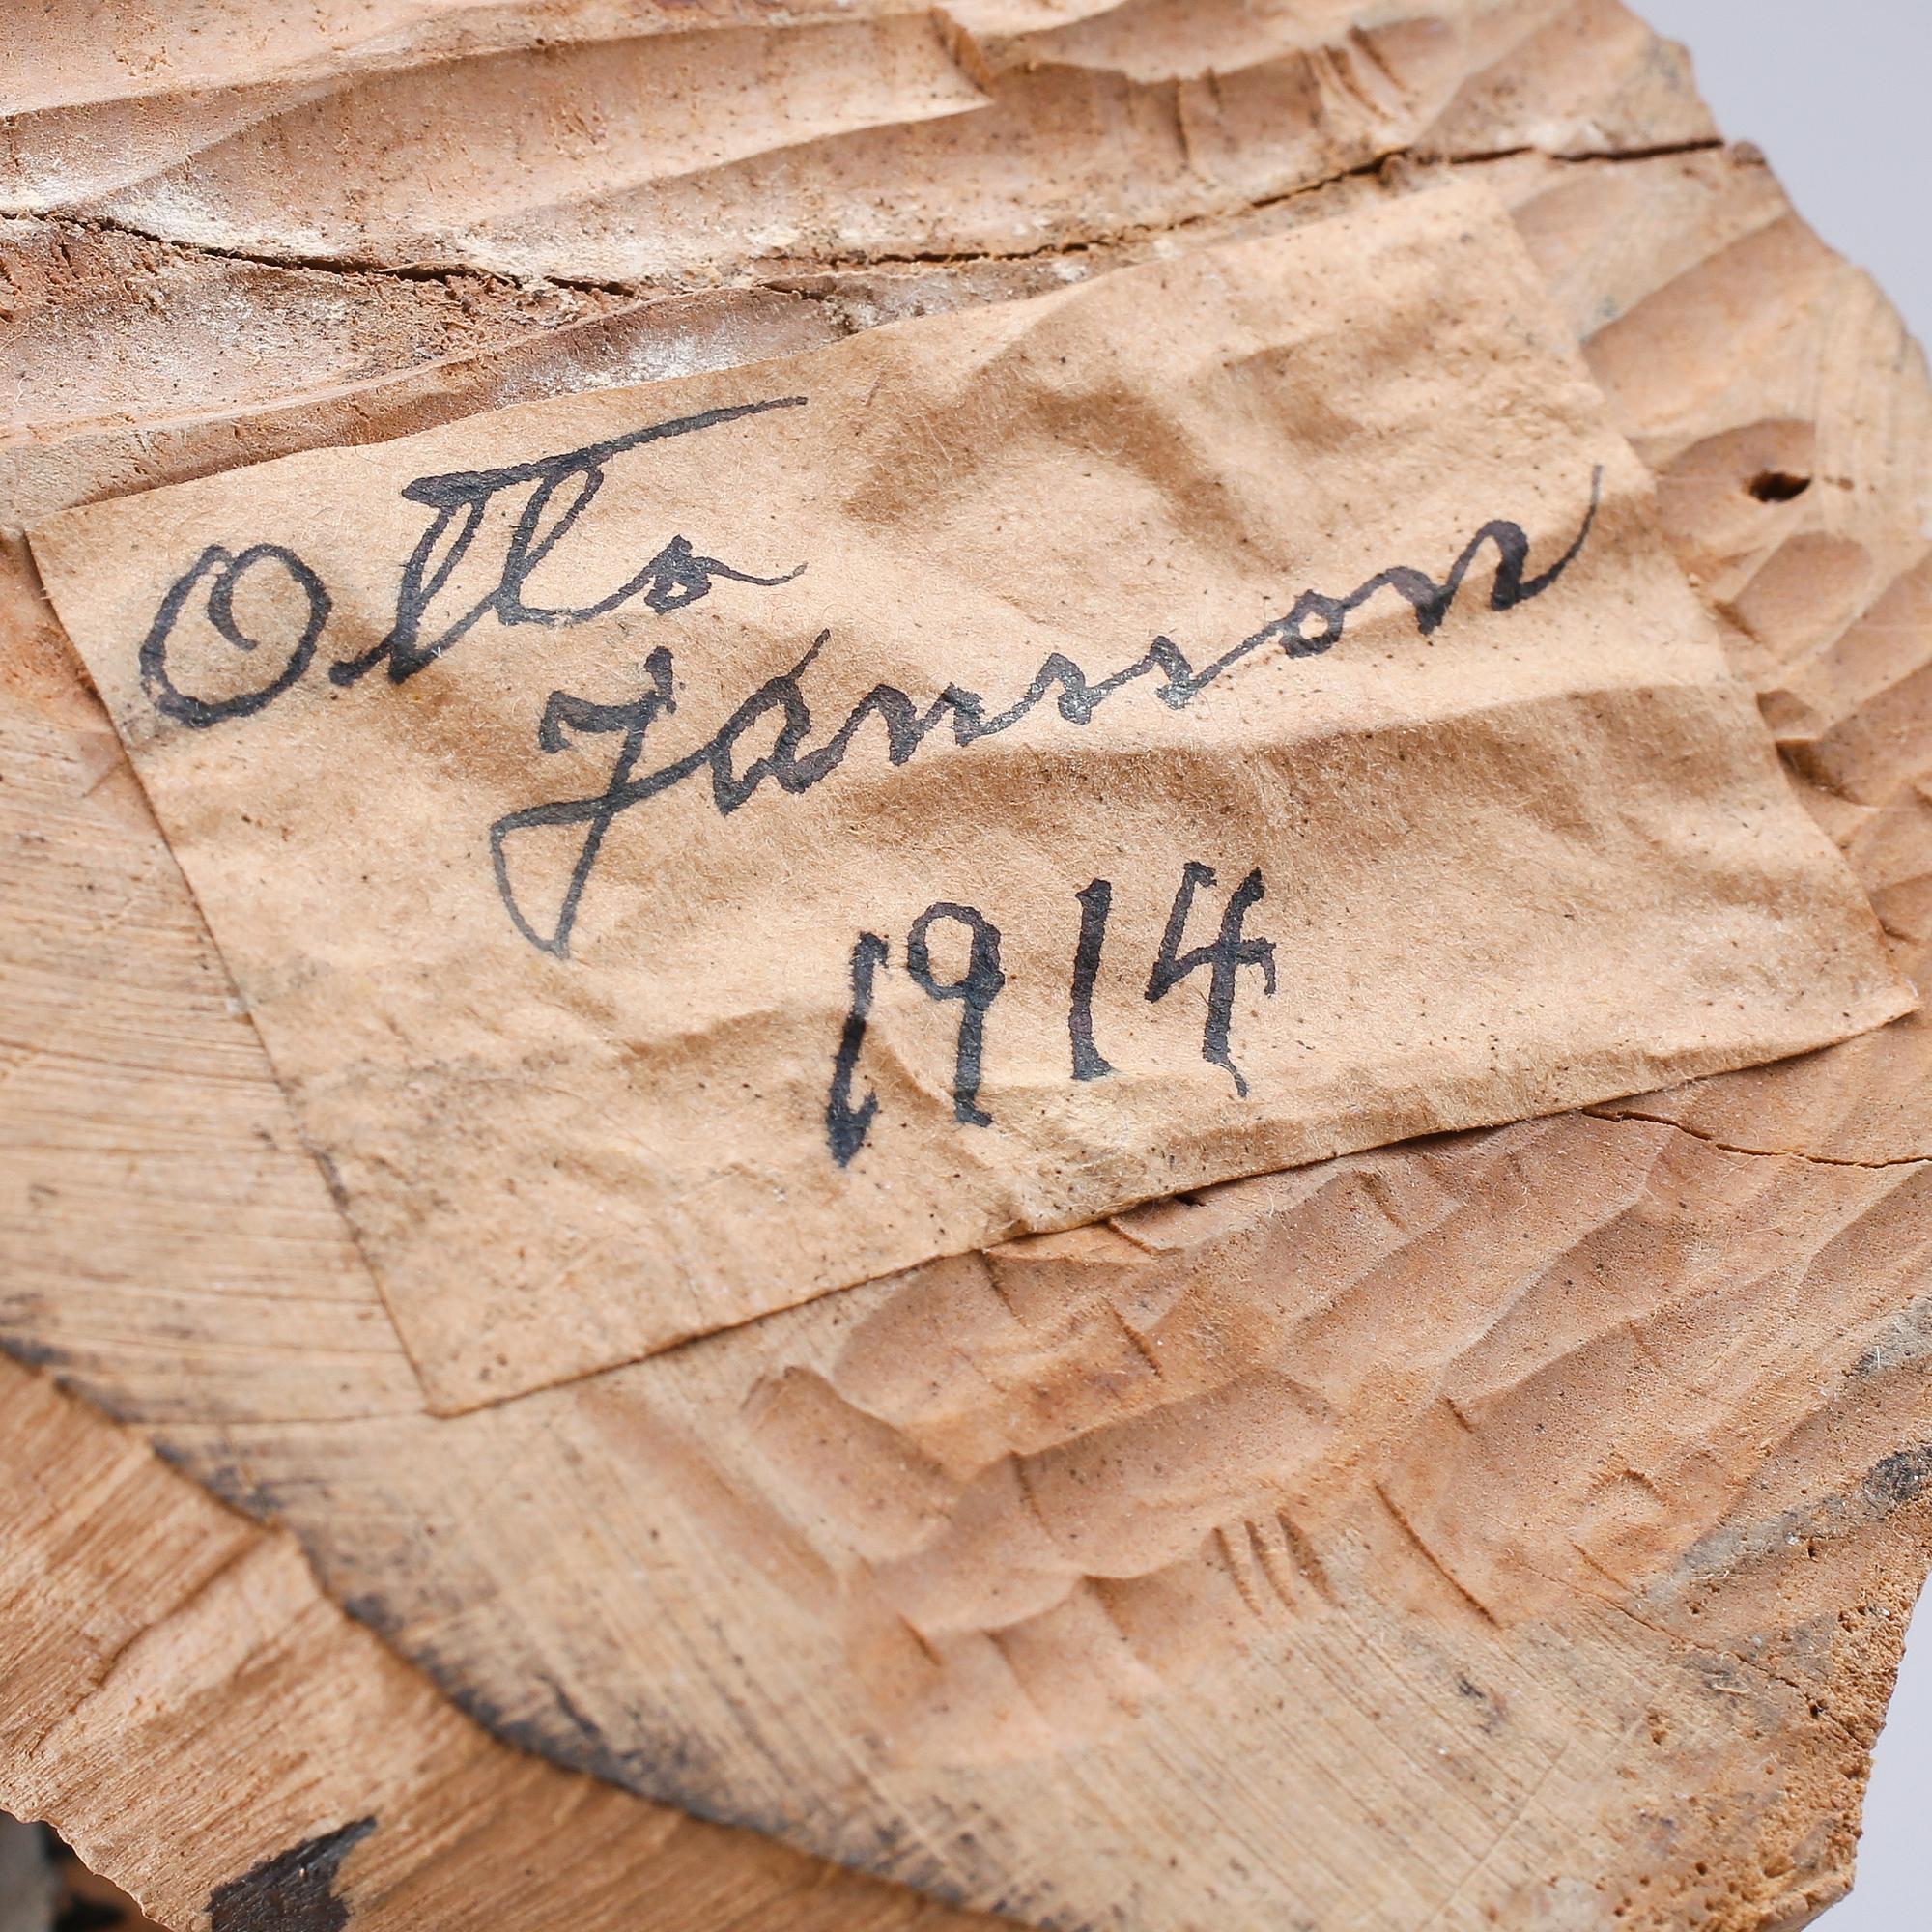 Otto
Jansson
1914